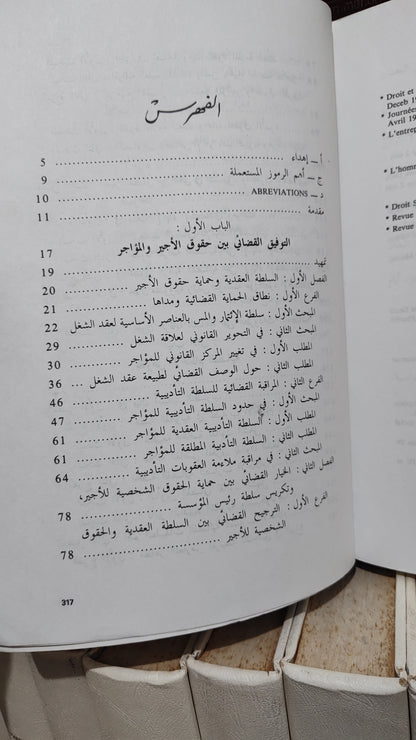 الفهرس
أ ــ إهداء ........ 5
ج ــ أهم الرموز المستعملة ........ 9
د ــ ABREVIATIONS ........ 10
مقدمة ........ 11
الباب الأول :
التوفيق القضائي بين حقوق الأجير والمؤاجر 17
تمهيد ........ 19
الفصل الأول : السلطة العقدية وحماية حقوق الأجير ........ 20
الفرع الأول : نطاق الحماية القضائية ومداها ........ 21
المبحث الأول : سلطة الإئتمار والمس بالعناصر الأساسية لعقد الشغل 22
المبحث الثاني : في التحوير القانوني لعلاقة الشغل ........ 29
المطلب الأول : في تغيير المركز القانوني للمؤاجر ........ 30
المطلب الثاني : حول الوصف القضائي لطبيعة عقد الشغل ... 36
الفرع الثاني : المراقبة القضائية للسلطة التأديبية ........ 46
المبحث الأول : في حدود السلطة التأديبية للمؤاجر ........ 47
المطلب الأول : السلطة التأديبية العقدية للمؤاجر ........ 61
المطلب الثاني : السلطة التأديبية المطلقة للمؤاجر ........ 61
المبحث الثاني : في مراقبة ملاءمة العقوبات التأديبية ........ 64
الفصل الثاني : الخيار القضائي بين حماية الحقوق الشخصية للأجير،
وتكريس سلطة رئيس المؤسسة ........ 78
الفرع الأول : الترجيح القضائي بين السلطة العقدية والحقوق
الشخصية للأجير ........ 78
317
• Droit et
Deceb 1
• Journées
Avril 19
• L'entrep
• L'homm
• Droit S
• Revue
• Revue